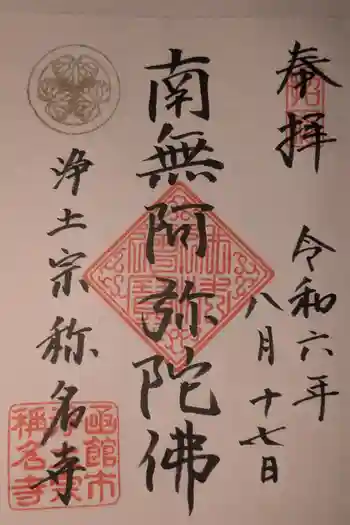 奉拝
令和六年
八月十七日
南無阿弥陀佛
浄土宗称名寺
函館市
稱名寺